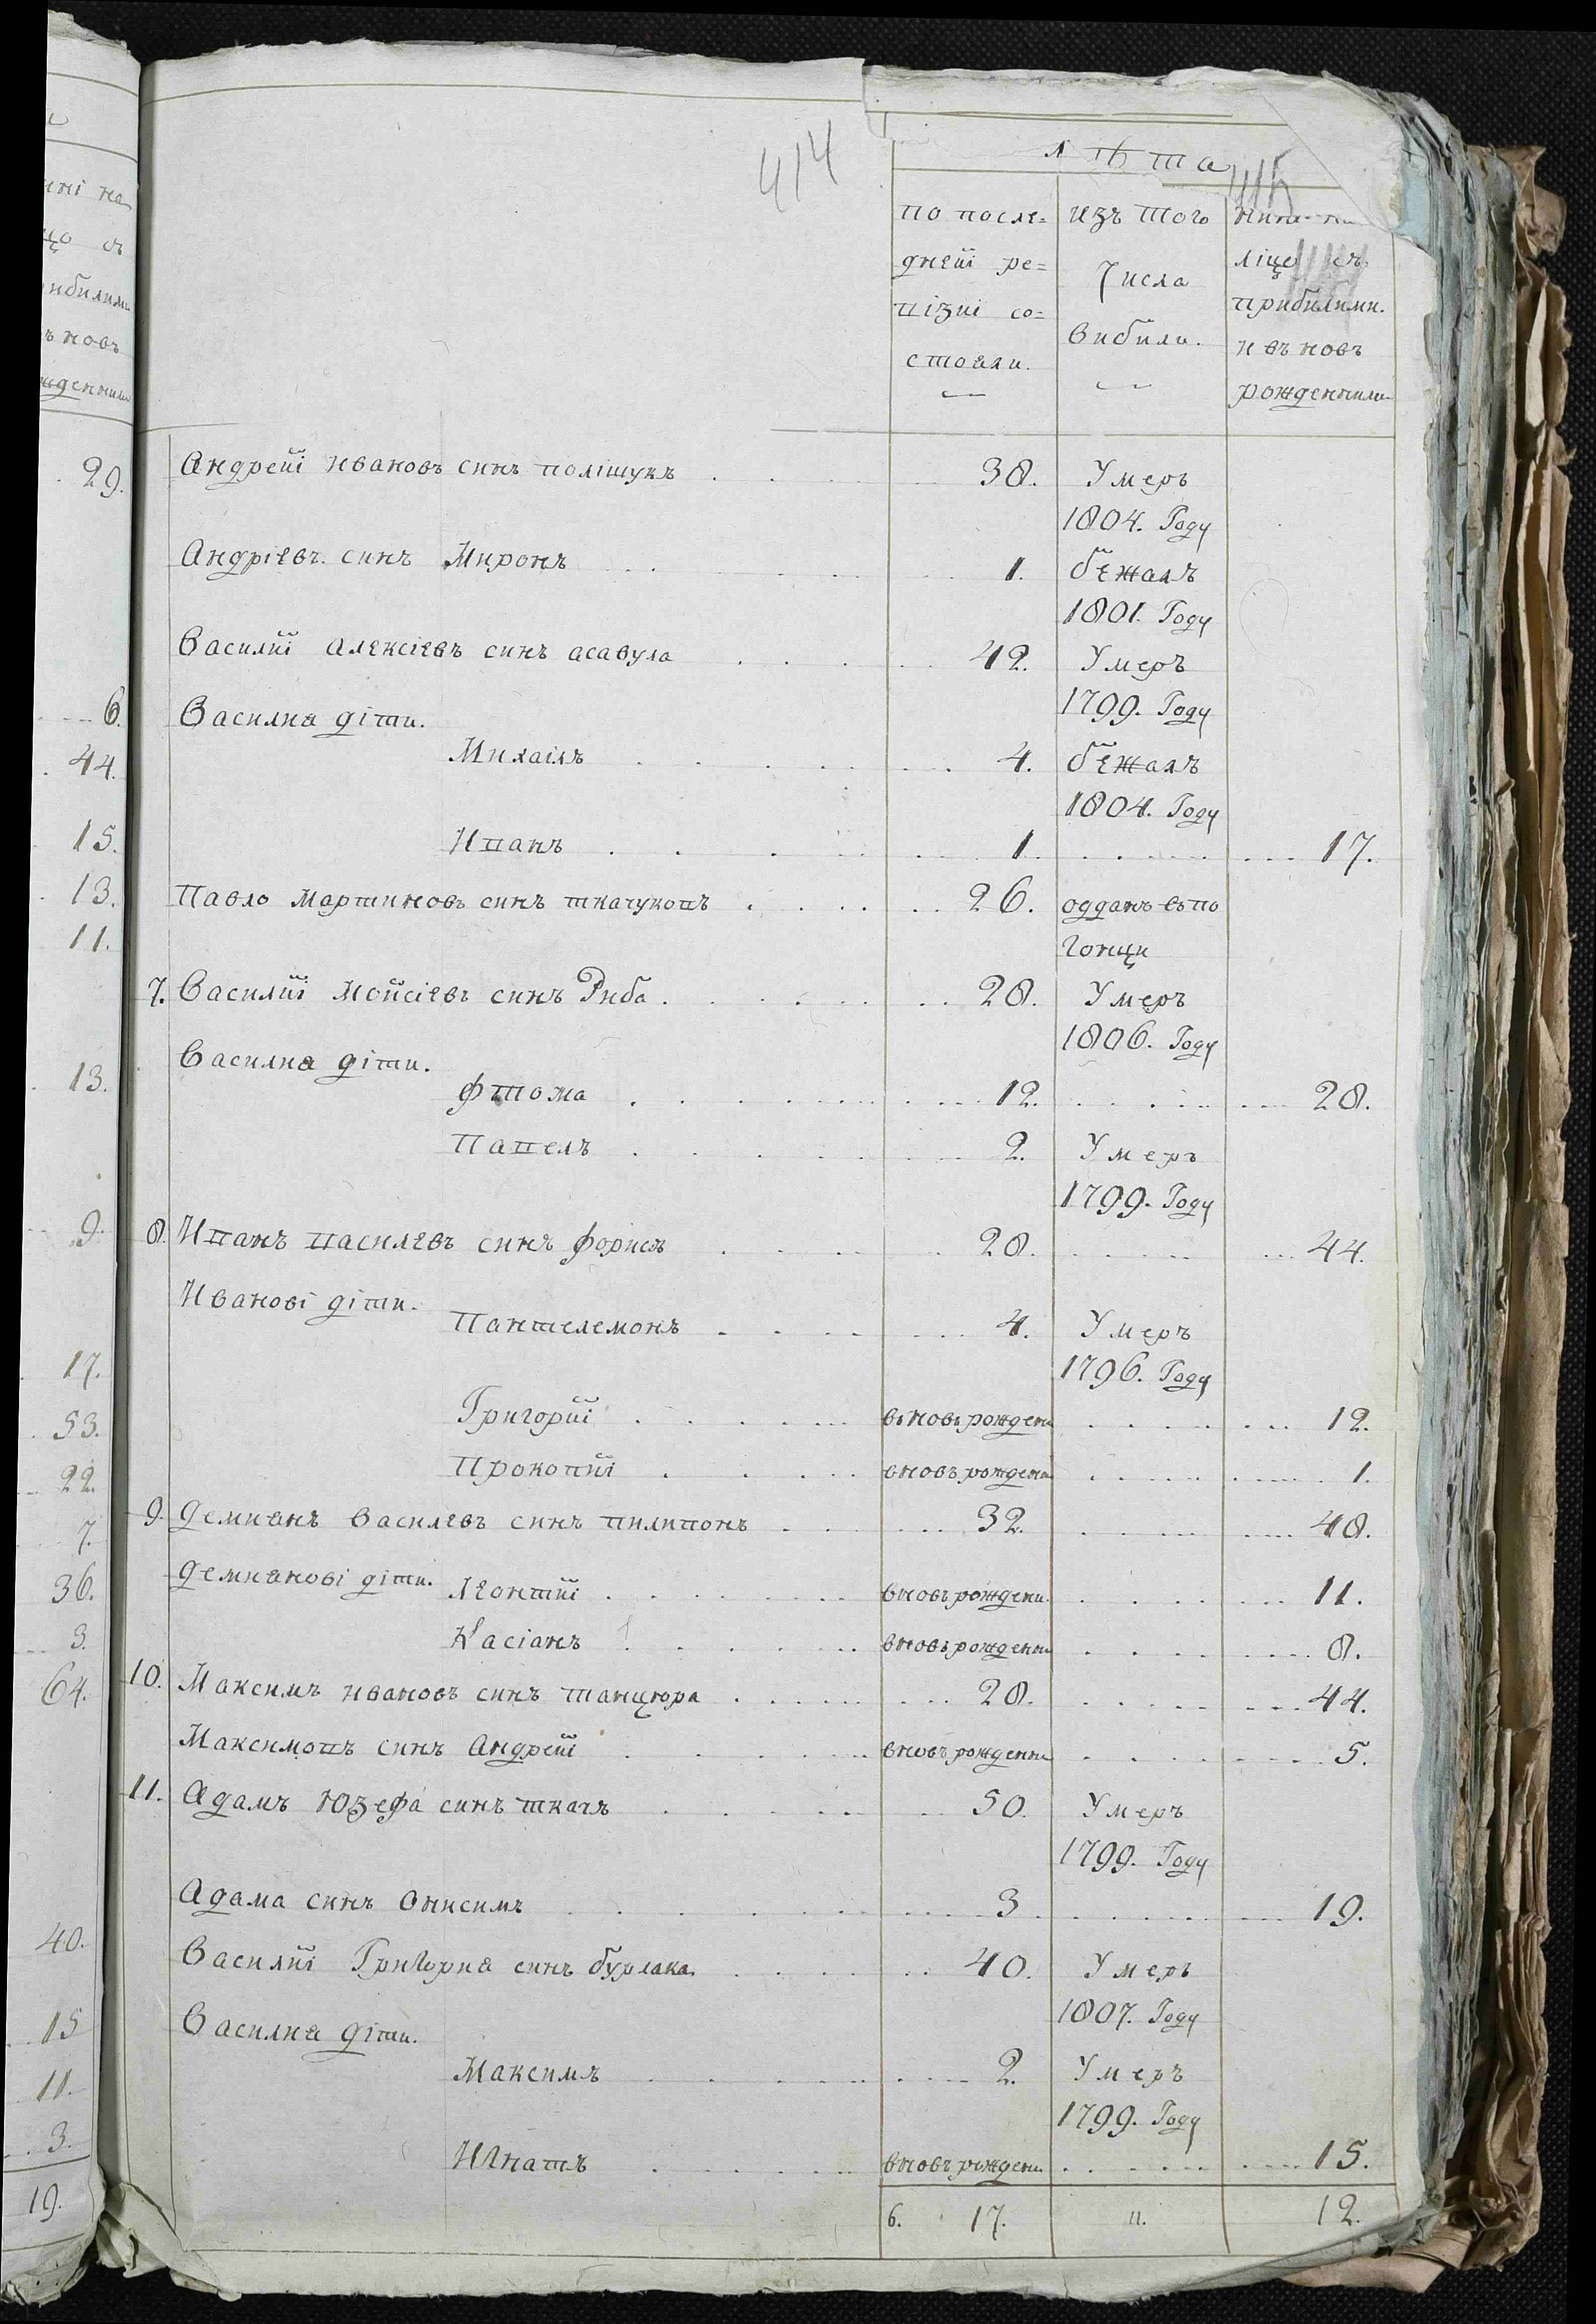 414
лѣта
по после=
дней ре=
візиі со=
стояли.
изъ того
числа
вибили.
ліцо съ
прибилими.
и въ новъ
рожденними
Андрей Ивановъ синъ поліщукъ 38. Умеръ
1804. Году
Андріевъ синъ Миронъ 1. бежалъ
1801. Году
Василій Алексіевъ синъ асавула 42. Умеръ
1799. Году
Василия діти.
Михаілъ 4. бежалъ
1804. Году
Иванъ 1. 17.
Павло Мартиновъ синъ ткачуковъ 26. odданъ въ по
гонци
7. Василій Мойсіевъ синъ Риба 28. Умеръ
1806. Году
Василия діти.
Фтома 12. 28.
Павелъ 2. Умеръ
1799. Году
8. Иванъ василевъ синъ форисъ 28. 44.
Иванові діти.
Пантелемонъ 4. Умеръ
1796. Году
Григорій вьновърождени 12.
Прокопій вновърождени 1.
9. Демианъ Василевъ синъ пилипонъ 32. 48.
Демианові діти. Леонтій вновърождени 11.
Касіанъ вновърождени 8.
10. Максимъ Ивановъ синъ танцюра 28. 44.
Максимовъ синъ Андрей вновърождени 5.
11. Адамъ Юзефа синъ ткачъ 50. Умеръ
1799. Году
Адама синъ Онисимъ 3 19.
Василій Григория синъ бурлака 40. Умеръ
1807. Году
Василия діти.
Максимъ 2. Умеръ
1799. Году
Игнатъ вновърождени 15.
6. 17. 11. 12.
29.
6.
44.
15.
13.
11.
13.
9.
17.
53.
22.
7.
36.
3.
64.
40.
15
11.
3.
19.